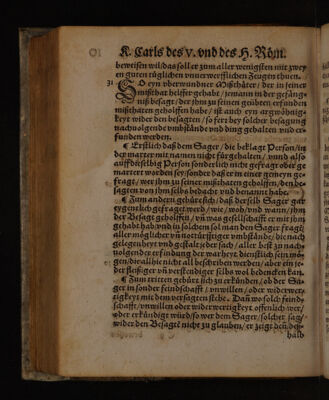 K. Carls des v. vnd des H. Röm.
beweisen wil/das soll er zum aller wenigsten mit zwey
en guten tüglichen vnuerwerfflichen Zeugen thuen.
31 SO eyn vberwundner Mißthäter/der in seiner
mißthat helffer gehabt/jemant in der gefäng-
niß besagt/der jhm zu seinen geübten erfunden
mißthaten geholffen habe/ist auch eyn argwönig-
keyt wider den besagten/so fern bey solcher besagung
nachuolgende vmbstände vnd ding gehalten vnd er-
funden werden.
¶ Erstlich daß dem Sager/die beklagt Person/in
der marter mit namen nicht fürgehalten/vnnd also
auff dieselbig Person sonderlich nicht gefragt oder ge
martert worden sey/sonder daß er in einer gemeyn ge-
fragt/wer jhm zu seiner mißthaten geholffen/den be-
sagten von jhm selbs bedacht vnd benannt habe.
¶ Zum andern gebürt sich/daß derselb Sager gar
eygentlich gefragt werd/wie/woh/vnd wann/jhm
der Besagt geholffen/vñ was gesellschafft er mit jhm
gehabt hab/vnd in solchem sol man den Sager fragē
aller möglicher vñ notturfftiger vmbstände/die nach
gelegenheyt vnd gestalt jeder sach/aller best zu nach-
uolgender erfindung der warheyt dienstlich sein mö-
gen/die allhie nicht all beschrieben werden/aber ein je-
der fleissiger vñ verstendiger selbs wol bedencken kan.
¶ Zum tritten gebürt sich zu erkunden/ob der Sa-
ger in sonder feindschafft/vnwillen/oder widerwer-
tigkeyt mit dem versagten stehe. Dañ wo solch feind-
schafft/vnwillen oder widerwertigkeyt offentlich wer/
oder erkündigt würd/so wer dem Sager/solcher sag/
wider den Besagtē nicht zu glauben/er zeigt deñ deß-
halb